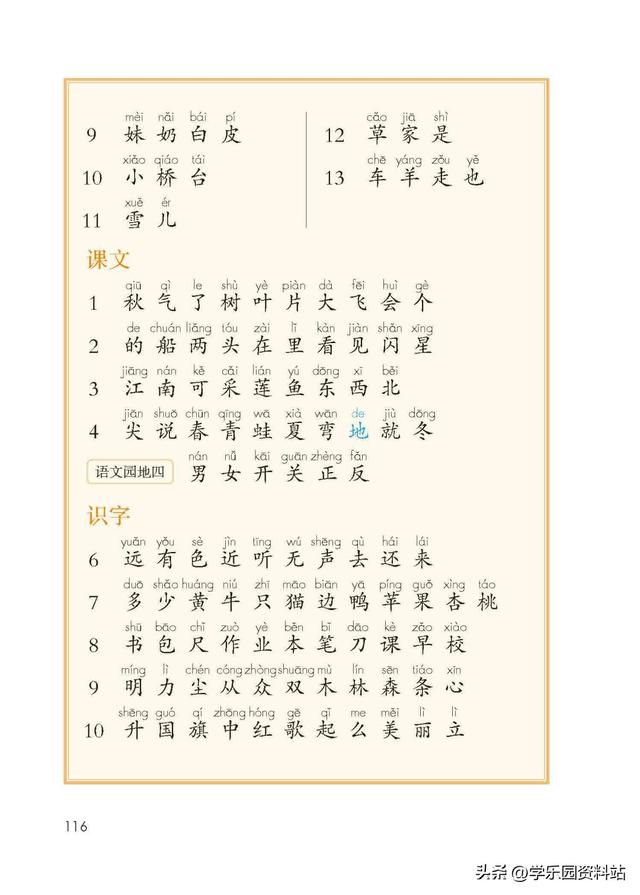 mèi nǎi bái pí
9 妹 奶 白 皮
xiǎo qiáo tái
10 小 桥 台
xuě ér
11 雪 儿
cǎo jiā shì
12 草 家 是
chē yáng zǒu yě
13 车 羊 走 也
课文
qiū qì le shù yè piàn dà fēi huì gè
1 秋 气 了 树 叶 片 大 飞 会 个
de chuán liǎng tóu zài lǐ kàn jiàn shǎn xīng
2 的 船 两 头 在 里 看 见 闪 星
jiāng nán kě cǎi lián yú dōng xī běi
3 江 南 可 采 莲 鱼 东 西 北
jiān shuō chūn qīng wā xià wān de jiù dōng
4 尖 说 春 青 蛙 夏 弯 地 就 冬
nán nǚ kāi guān zhèng fǎn
语文园地四 男 女 开 关 正 反
识字
yuǎn yǒu sè jìn tīng wú shēng qù hái lái
6 远 有 色 近 听 无 声 去 还 来
duō shǎo huáng niú zhī māo biān yā píng guǒ xìng táo
7 多 少 黄 牛 只 猫 边 鸭 苹 果 杏 桃
shū bāo chǐ zuò yè běn bǐ dāo kè zǎo xiào
8 书 包 尺 作 业 本 笔 刀 课 早 校
míng lì chén cóng zhòng shuāng mù lín sēn tiáo xīn
9 明 力 尘 从 众 双 木 林 森 条 心
shēng guó qí zhōng hóng gē qǐ me měi lì lì
10 升 国 旗 中 红 歌 起 么 美 丽 立
116
头条 @学乐园资料站